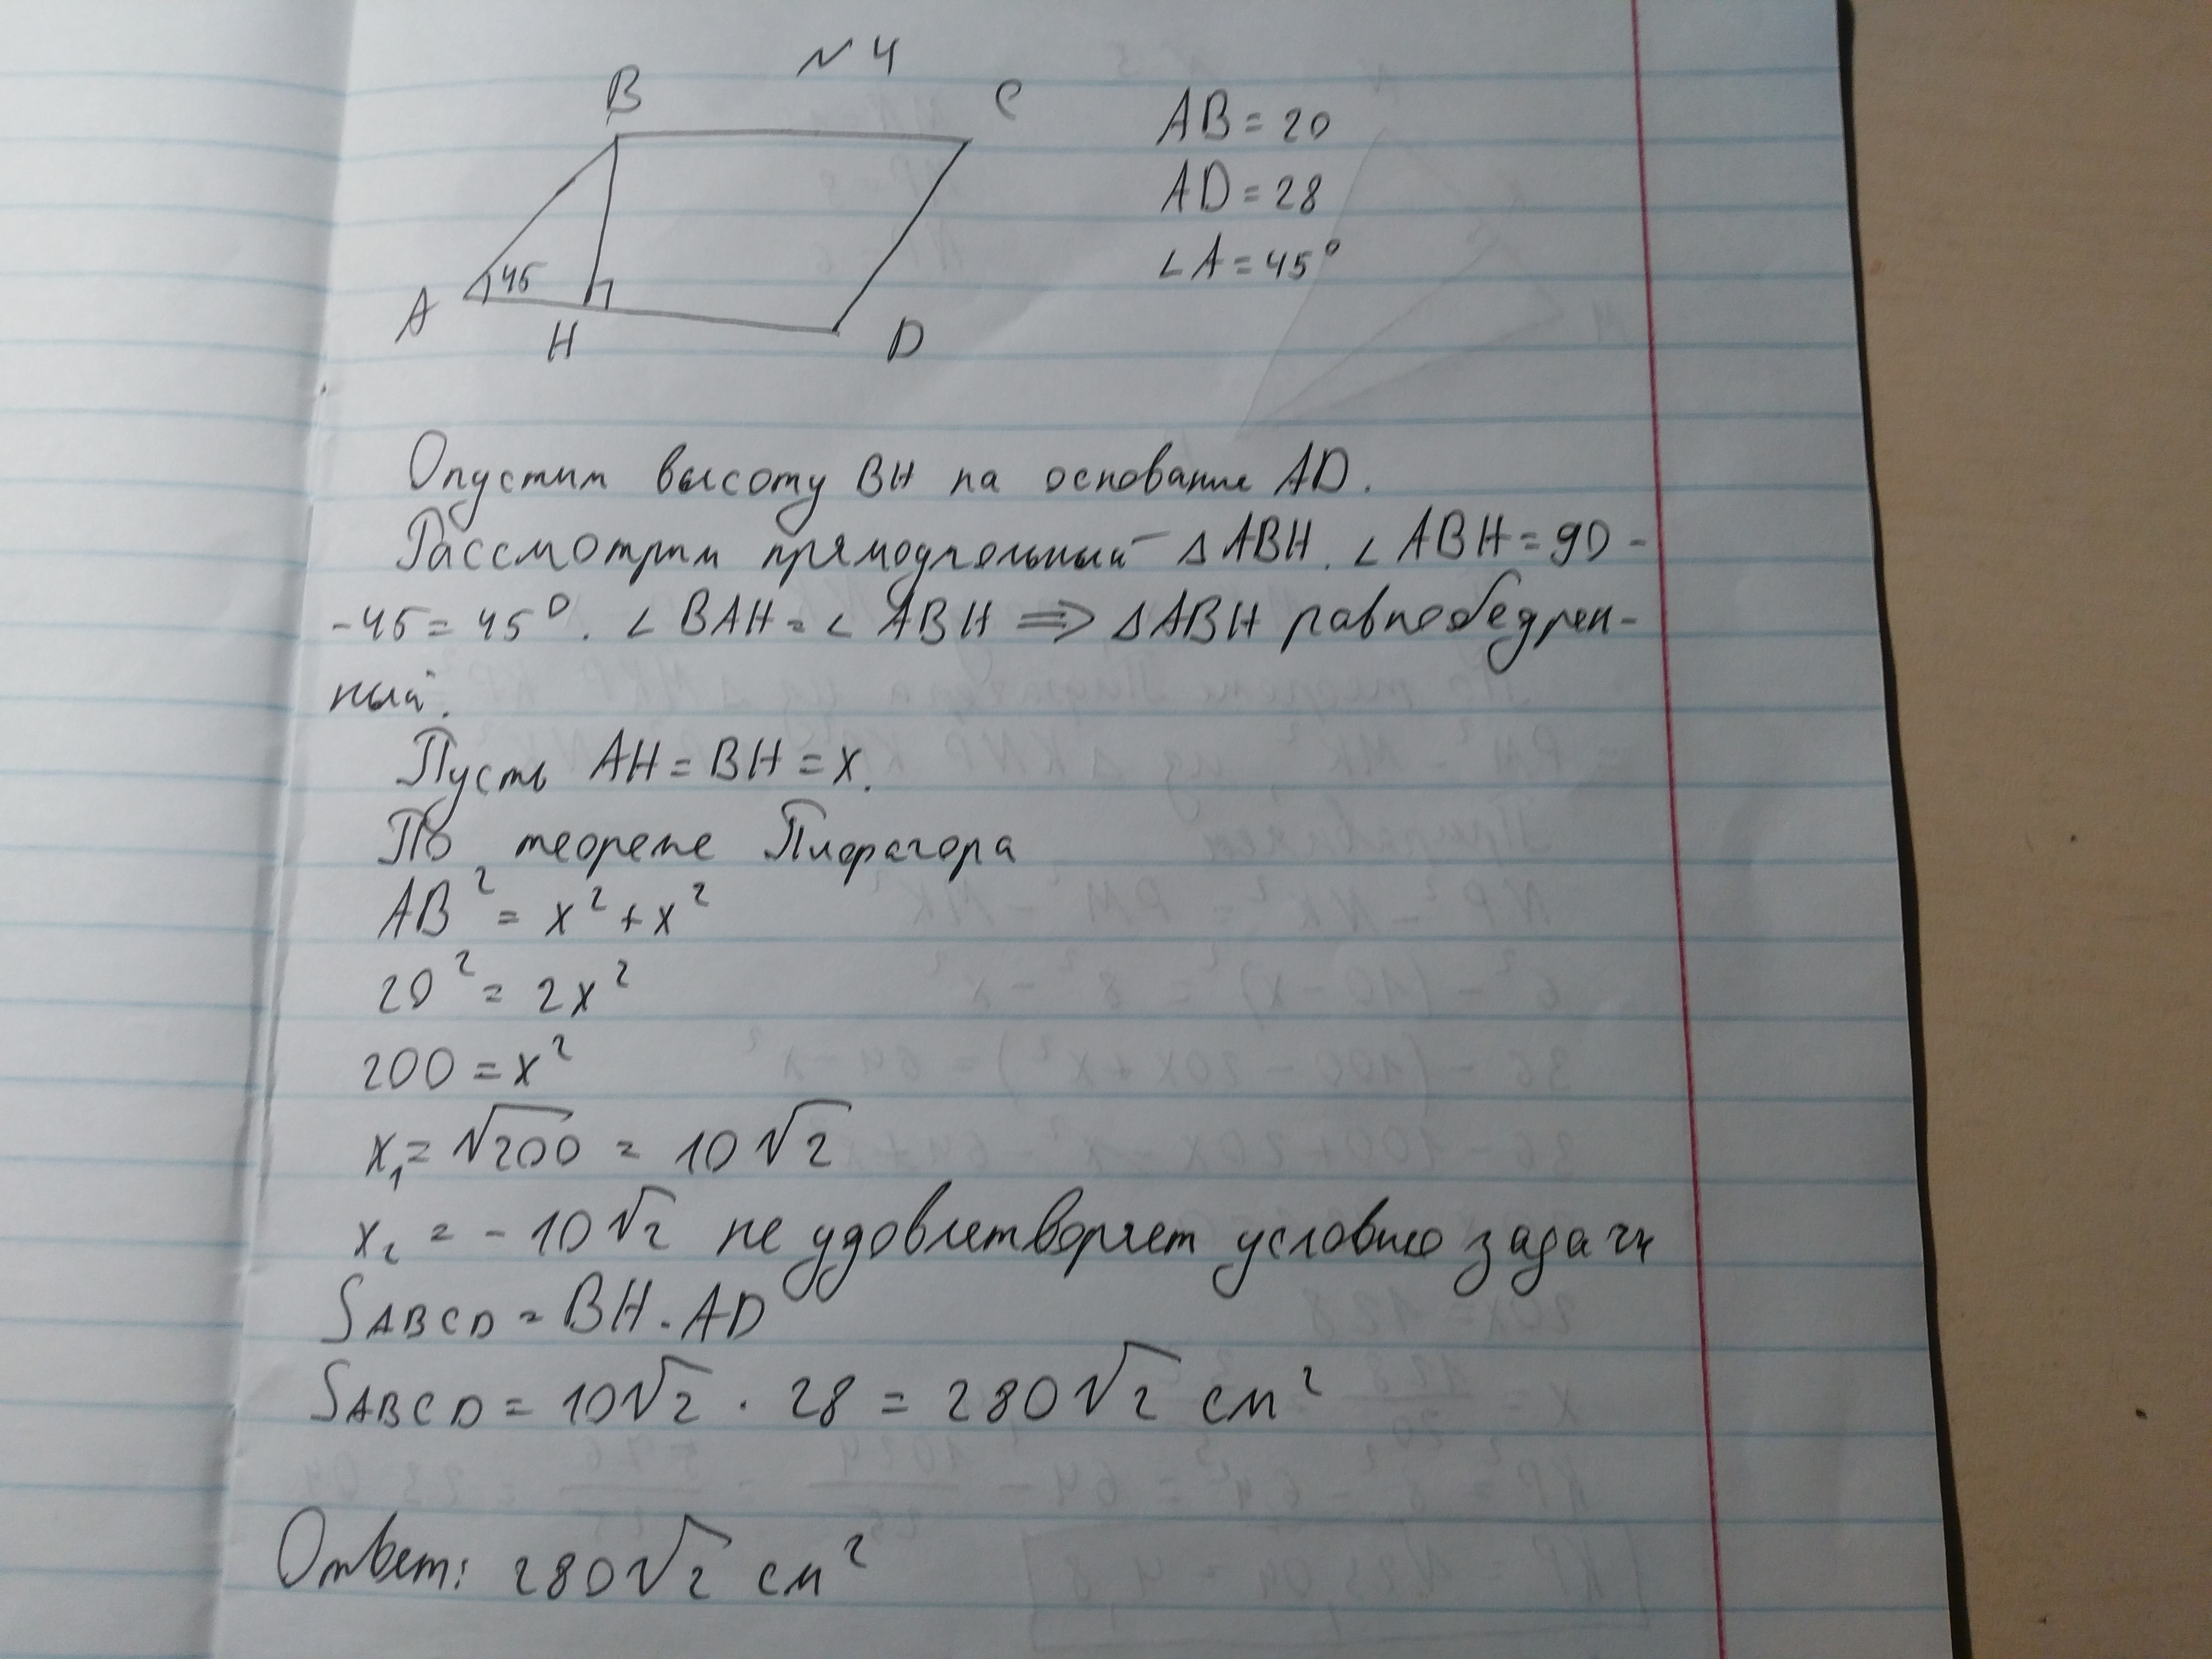 № 4
B
C
AB = 20
AD = 28
∠A = 45°
45
A
H
D
Опустим высоту BH на основание AD.
Рассмотрим прямоугольный ΔABH. ∠ABH = 90 -
- 45 = 45°. ∠BAH = ∠ABH ⇒ ΔABH равнобедрен-
ный.
Пусть AH = BH = x.
По теореме Пифагора
AB² = x² + x²
20² = 2x²
200 = x²
x₁ = √200 = 10√2
x₂ = - 10√2 не удовлетворяет условию задачи
S ABCD = BH · AD
S ABCD = 10√2 · 28 = 280√2 см²
Ответ: 280√2 см²